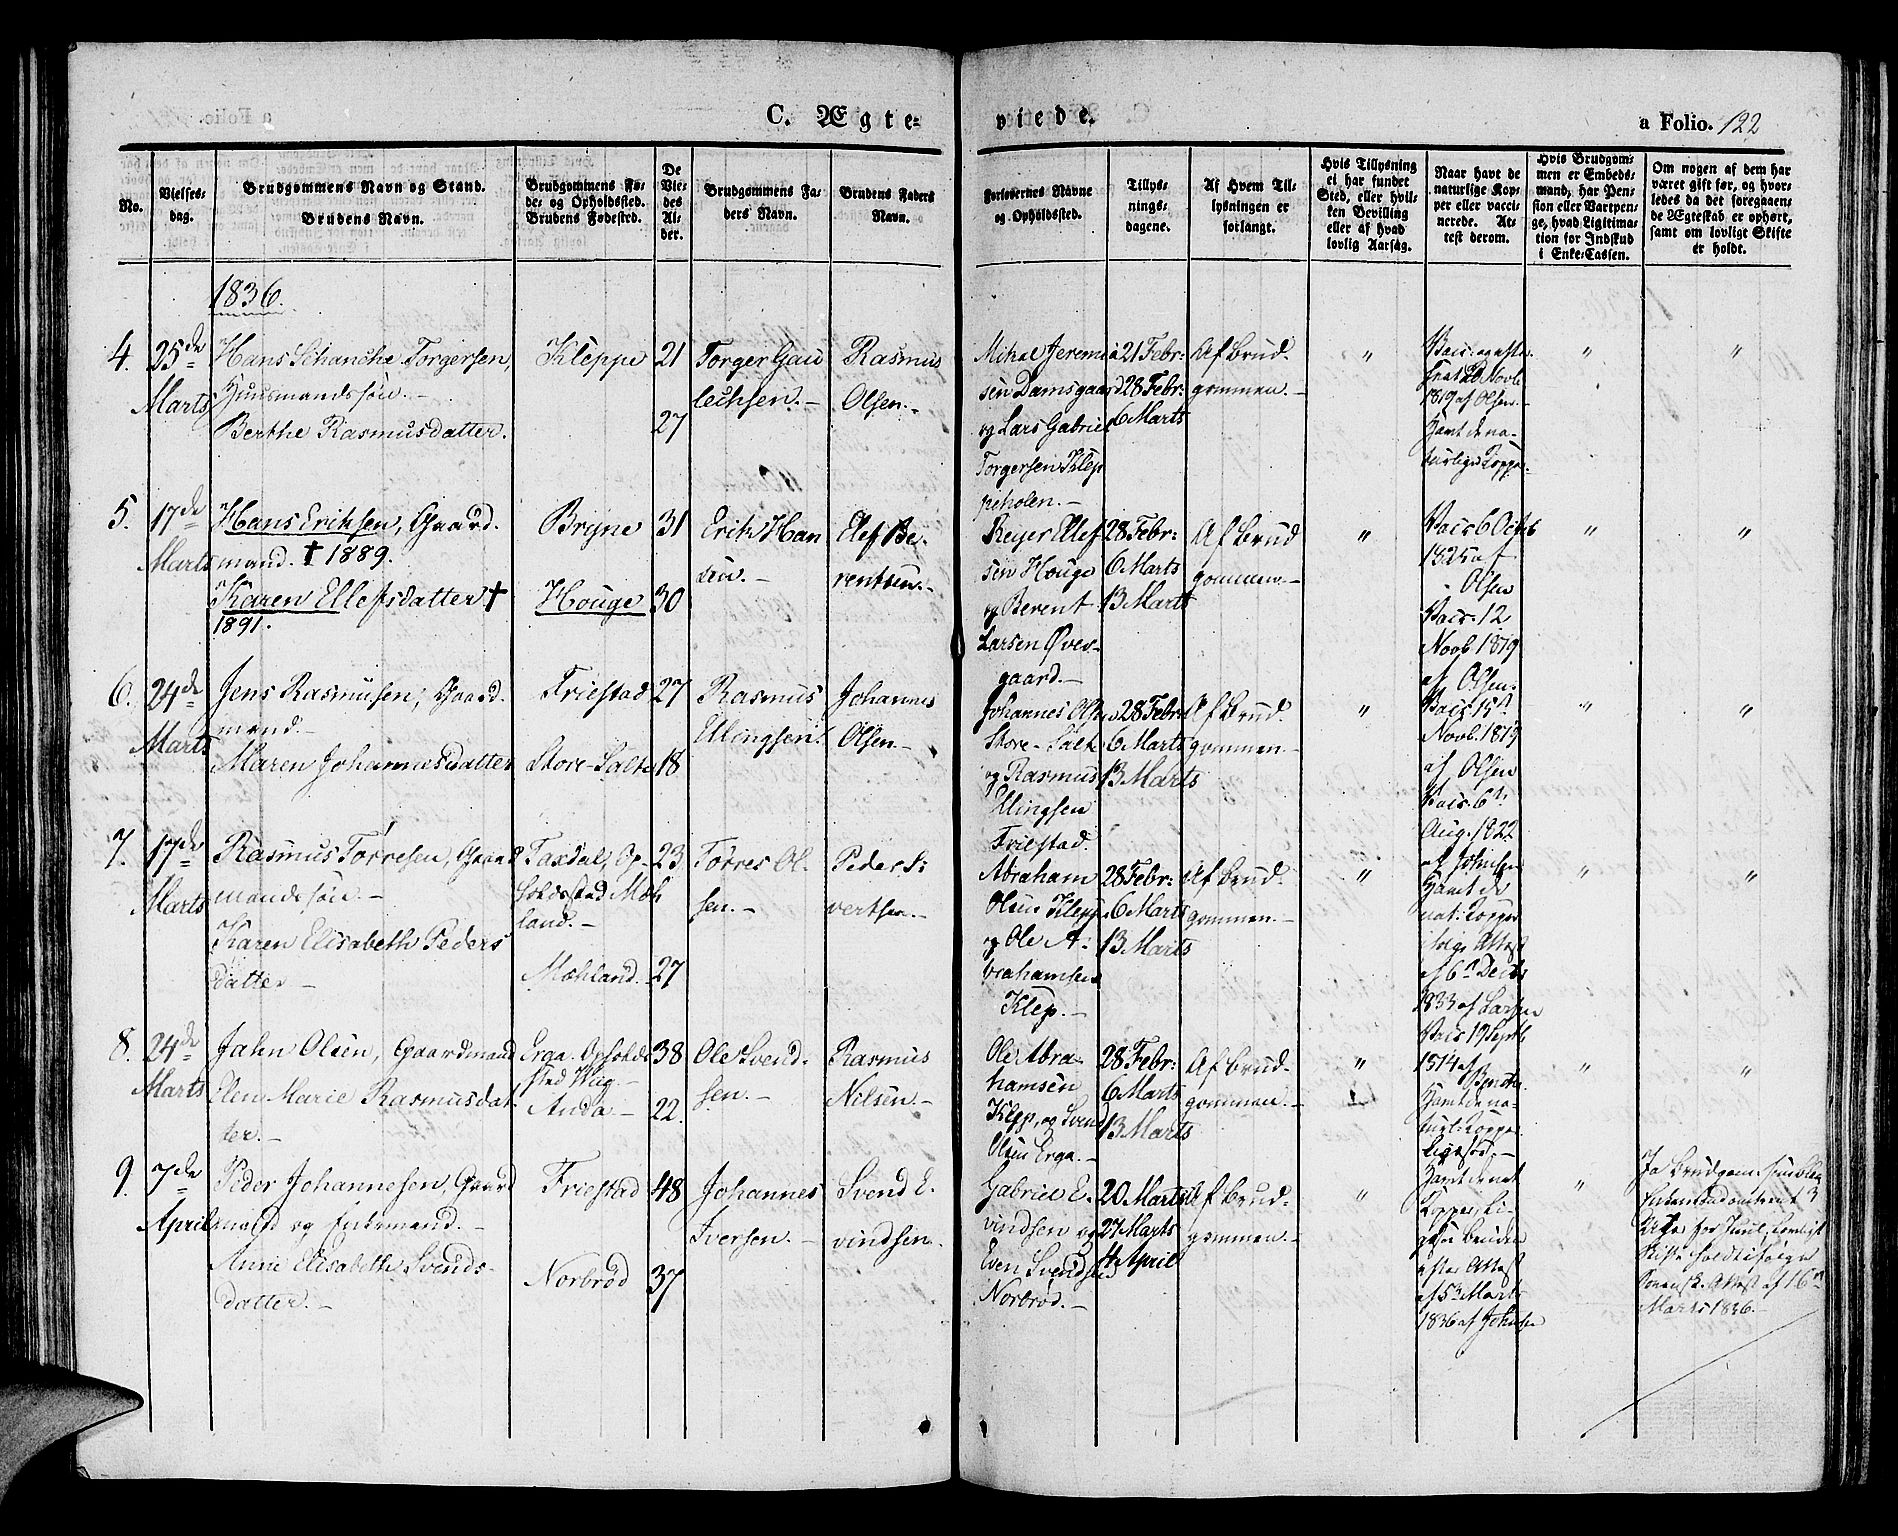 C. Ægte-
viede.
a Folio. 122
No.
Vielses-
dag.
Brudgommens Navn og Stand.
Brudens Navn.
Brudgommens Fø-
de- og Opholdssted.
Brudens Fødested.
De
Vie-
des
Al-
der.
Brudgommens Fa-
ders Navn.
Brudens Faders
Navn.
Forlovernes Navne
og Opholdssted.
Tillys-
nings-
dagene.
Af Hvem Til-
lysningen er
forlangt.
Hvis Tillysning
ei har fundet
Sted, eller hvil-
ken Bevilling
eller af hvad
lovlig Aarsag.
Naar havt de
naturlige Kop-
per eller vacci-
nerede. At-
test derom.
Hvis Brudgom-
men er Embeds-
mand, har Pen-
sion eller Vartpen-
ge, hvad Ligitima-
tion for Indskud
i Enke-Cassen.
Om nogen af dem har
været gift før, og hvor-
ledes da det foregaaen-
de Ægteskab er ophørt,
samt om lovligt Skifte
er holdt.
1836.
4.
25de
Marts
Hans Schanche Torgersen,
Huusmandssøn.-
Berthe Rasmusdatter.
Kleppe
21
27
Torger Gau
lechsen.-
Rasmus
Olsen.-
Mikal Jeremia
sen Damsgaard
og Lars Gabriel
Torgersen Klep
peholen.-
21 Febr:
28 Febr:
6 Marts
Af Brud-
gommen.-
"
Novb
1819 af Olsen.-
havt de na-
turlige Kopper.
"
"
5.
17de
Marts
Hans Eriksen, Gaard-
mand. † 1889.
Karen Ellefsdatter †
1891.
Bryne
Houge
31
30
Erik Han
sen.-
Elef Be-
rentsen.-
Reyer Ellef
sen Houge
og Berent
Larsen Øver-
gaard.-
28 Febr:
6 Marts
13 Marts
Af Brud
gommen.-
"
Vacc. 6 Octb
1825 af
Olsen
Vacc. 12
Novb. 1819
af Olsen.
"
"
6.
24de
Marts
Jens Rasmusen, Gaard-
mand.-
Maren Johannesdatter
Friestad
Store-Salte
27
18
Rasmus
Ellingsen.
Johannes
Olsen.-
Johannes Ols
Store-Salte
og Rasmus
Ellingsen
Friestad.
28 Febr:
6 Marts
13 Marts
Af Brud-
gommen.-
"
Vacc. 15
Novb. 1819
af Olsen
Vacc. 6
Aug. 1822
af Johnsen
"
"
7.
17de
Marts
Rasmus Tørresen, Gaard
mandssøn.-
Karen Elisabeth Peders
datter -
Taxdal, Op-
holdssted Mæh
land.-
Mæhland.-
23
27
Tørres Ol-
sen.-
Peder Si
vertsen.-
Abraham
Olsen Klepp
og Ole A-
brahamsen
Klep.-
28 Febr:
6 Marts
13 Marts
Af Brud-
gommen.-
"
havt de
nat: Kopper
ifølge Attest
af 6 Decb
1833 af Larsen
"
"
8.
24de
Marts
Jahn Olsen, Gaardmand
Elen Marie Rasmusdat-
ter.-
Erga. Opholds
sted Wiig.-
Anda -
38
22.
Ole Svend-
sen.-
Rasmus
Nilsen.-
Ole Abra-
hamsen
Klepp, og Svend
Olsen Erga.-
28 Febr:
6 Marts
13 Marts
Af Brud-
gommen.-
"
Vacc. 19 Septb
1814 af
havt de na-
turl: Kopper
"
"
9.
7de
April
Peder Johannesen, Gaard
mand og Enkemand.-
Anne Elisabeth Svends-
datter.-
Friestad
Norbrød
48
37
Johannes
Iversen.-
Svend E-
vindsen.
Gabriel E-
vindsen og
Even Svendsen
Norbrød.-
20 Marts
27 Marts
4 April
Af Brud-
gommen.-
"
havt de nat
Kopper, Li-
gesaa Bruden
efter Attest
af 5 Marts
1836 af Johnsen
"
Ja Brudgom:
Enkemand omtrent 3
Uger før Juul, lovligt
Skifte holdt ifølge
Attest af 16
Marts 1836.-